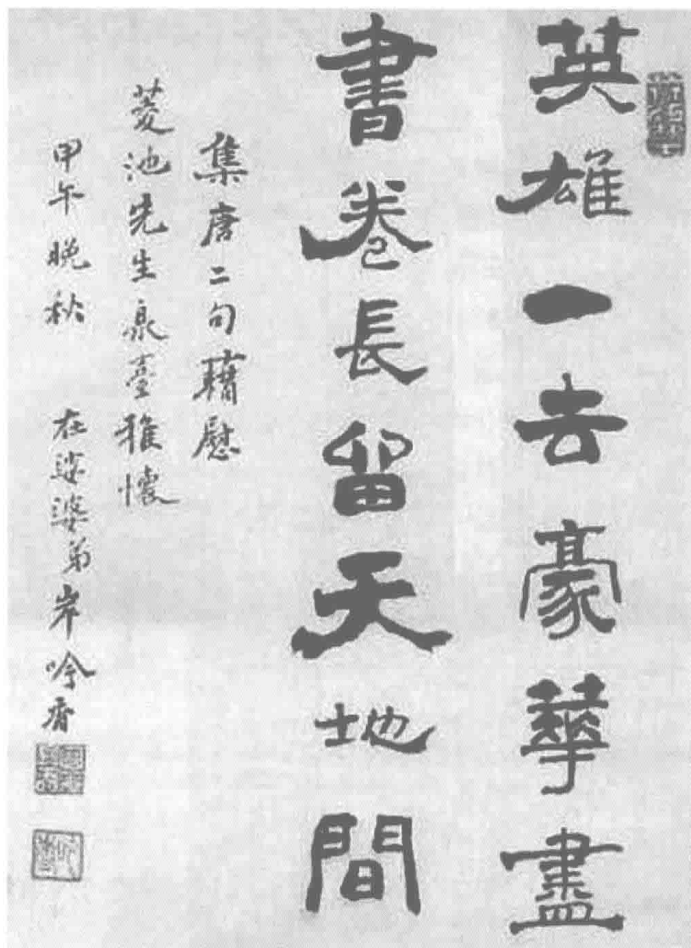 英雄一去豪華盡
書卷長留天地間
集唐二句藉慰
菱池先生泉臺雅懷
甲午晚秋 在娑婆弟吟